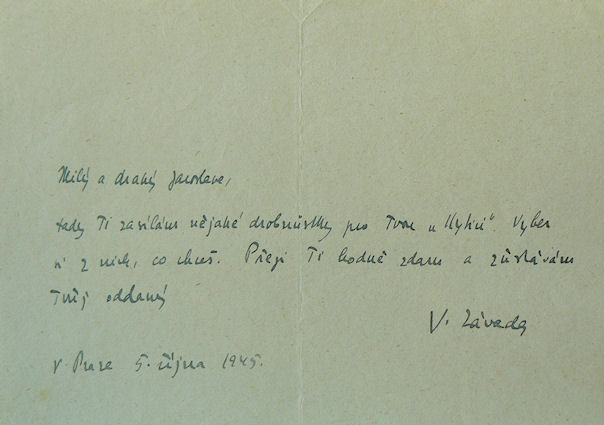 Milý a drahý Jaroslave,
tady Ti zasílám nějaké drobnůstky pro Tvou „Kytici“. Vyber
si z nich, co chceš. Přeji Ti hodně zdaru a zůstávám
Tvůj oddaný
V. Závada
V Praze 5. října 1945.